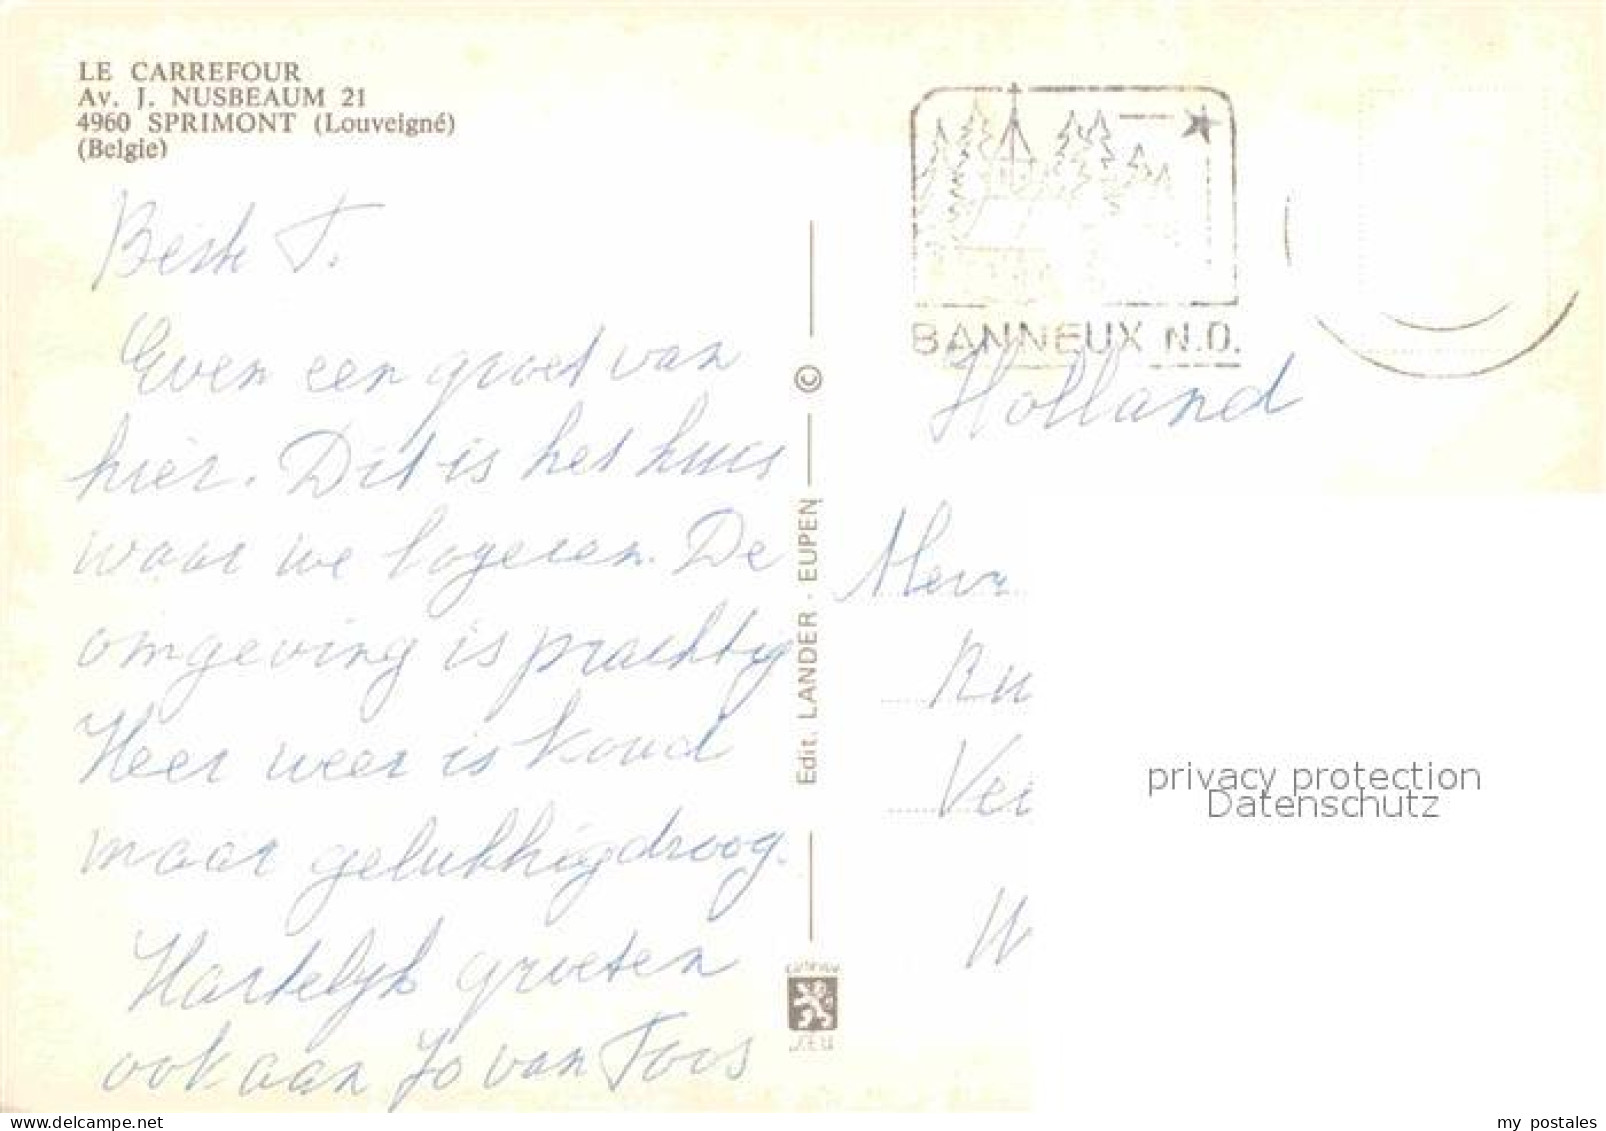 LE CARREFOUR
Av. J. NUSBEAUM 21
4960 SPRIMONT (Louveigné)
(Belgie)
Beste T.
Even een groet van
hier. Dit is het huis
waar we logeren. De
omgeving is prachtig
Heer weer is koud
maar gelukkig droog.
Hartelijk groeten
ook aan Jo van Toos
Edit. LANDER - EUPEN ©
BANNEUX N.D.
Holland
Mevr
Ru
Vei
W
privacy protection
Datenschutz
my postales
www.delcampe.net